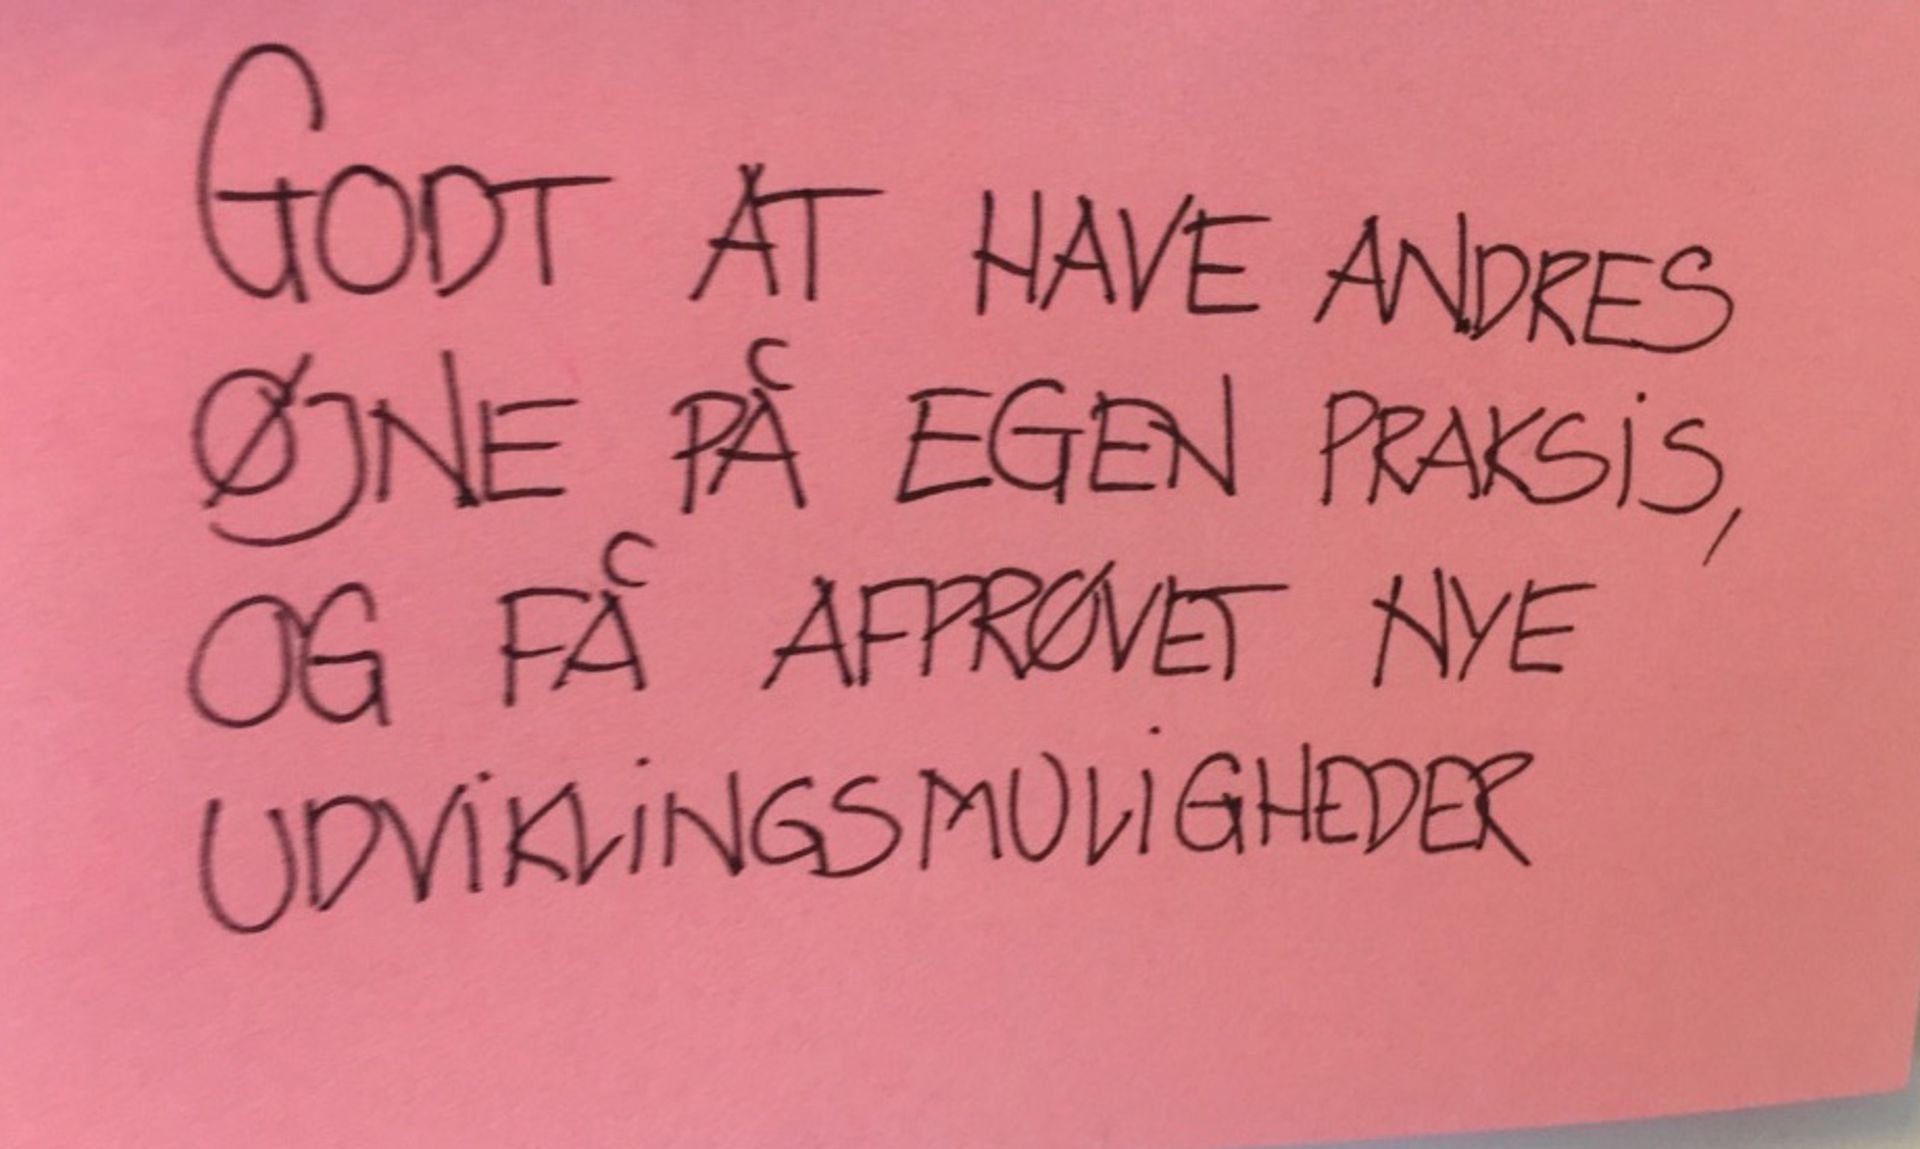 GODT AT HAVE ANDRES
ØJNE PÅ EGEN PRAKSiS,
OG FÅ AFPRØVET NYE
UDViKLiNGSMULiGHEDER